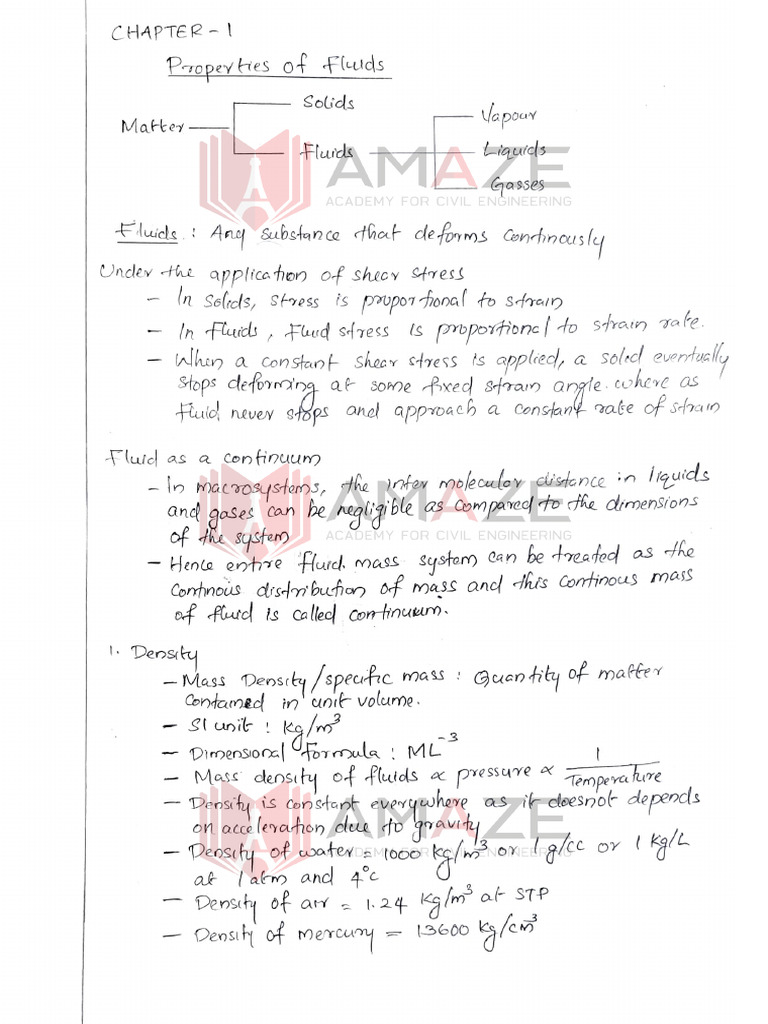 CHAPTER - 1
Properties of Fluids
Solids
Vapour
Matter
Fluids
Liquids
Gasses
AMAZE
ACADEMY FOR CIVIL ENGINEERING
Fluids : Any substance that deforms continously
Under the application of shear stress
- In solids, stress is proportional to strain
- In fluids, fluid stress is proportional to strain rate.
- When a constant shear stress is applied, a solid eventually
stops deforming at some fixed strain angle. where as
fluid never stops and approach a constant rate of strain
Fluid as a continuum
- In macrosystems, the inter molecular distance in liquids
and gases can be negligible as compared to the dimensions
of the system
AMAZE
ACADEMY FOR CIVIL ENGINEERING
- Hence entire fluid mass system can be treated as the
continous distribution of mass and this continous mass
of fluid is called continuum.
1. Density
- Mass Density/specific mass : Quantity of matter
contained in unit volume.
- SI unit : kg/m³
- Dimensional formula : ML⁻³
- Mass density of fluids ∝ pressure ∝ 1/Temperature
- Density is constant everywhere as it doesnot depends
on acceleration due to gravity
AMAZE
ACADEMY FOR CIVIL ENGINEERING
- Density of water = 1000 kg/m³ or 1 g/cc or 1 kg/L
at 1 atm and 4°c
- Density of air = 1.24 kg/m³ at STP
- Density of mercury = 13600 kg/cm³